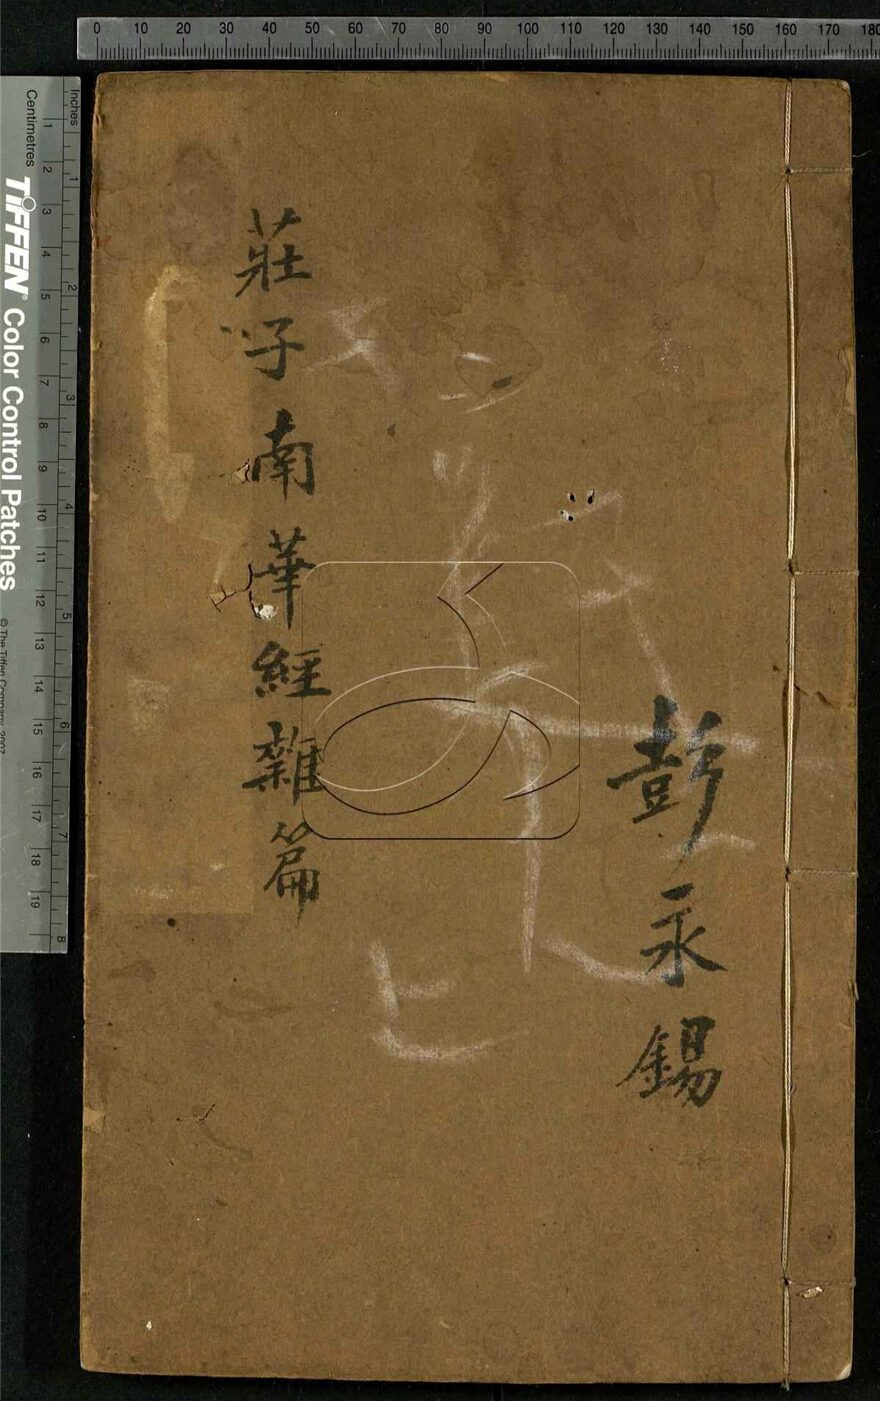 0 10 20 30 40 50 60 70 80 90 100 110 120 130 140 150 160 170 180
Inches
Centimetres
1 2 3 4 5 6 7 8
1 2 3 4 5 6 7 8 9 10 11 12 13 14 15 16 17 18 19
TIFFEN® Color Control Patches
© The Tiffen Company, 2007
彭永錫
莊子南華經雜篇